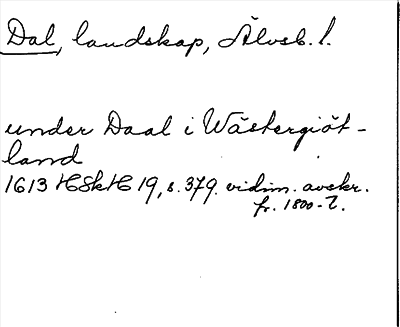 Dal, landskap, Älvsb. l.
under Daal i Wästergiöt-
land
1613 HSkH 19, s. 379. vidim. avskr.
fr. 1800-t.